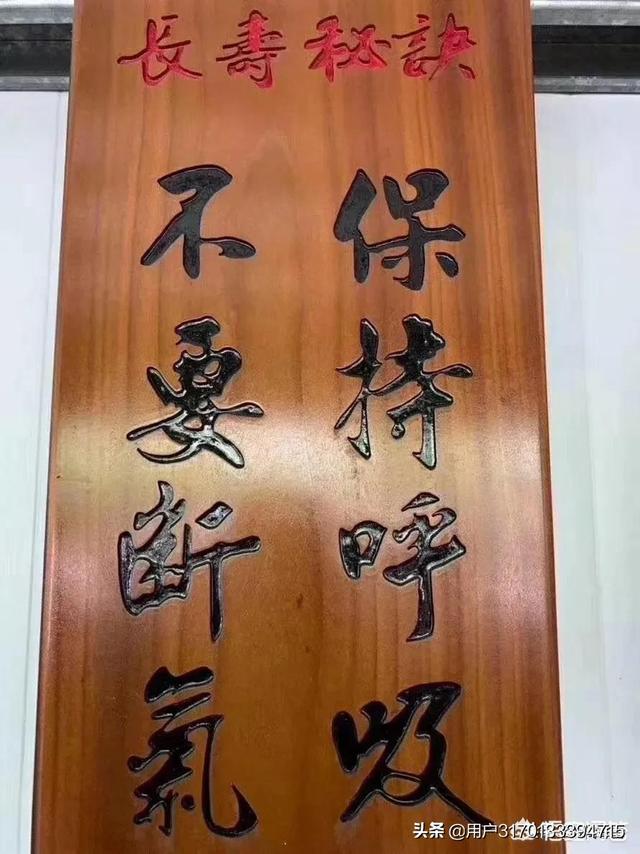 長壽秘訣
保持呼吸
不要斷氣
头条 @用户3170133394715